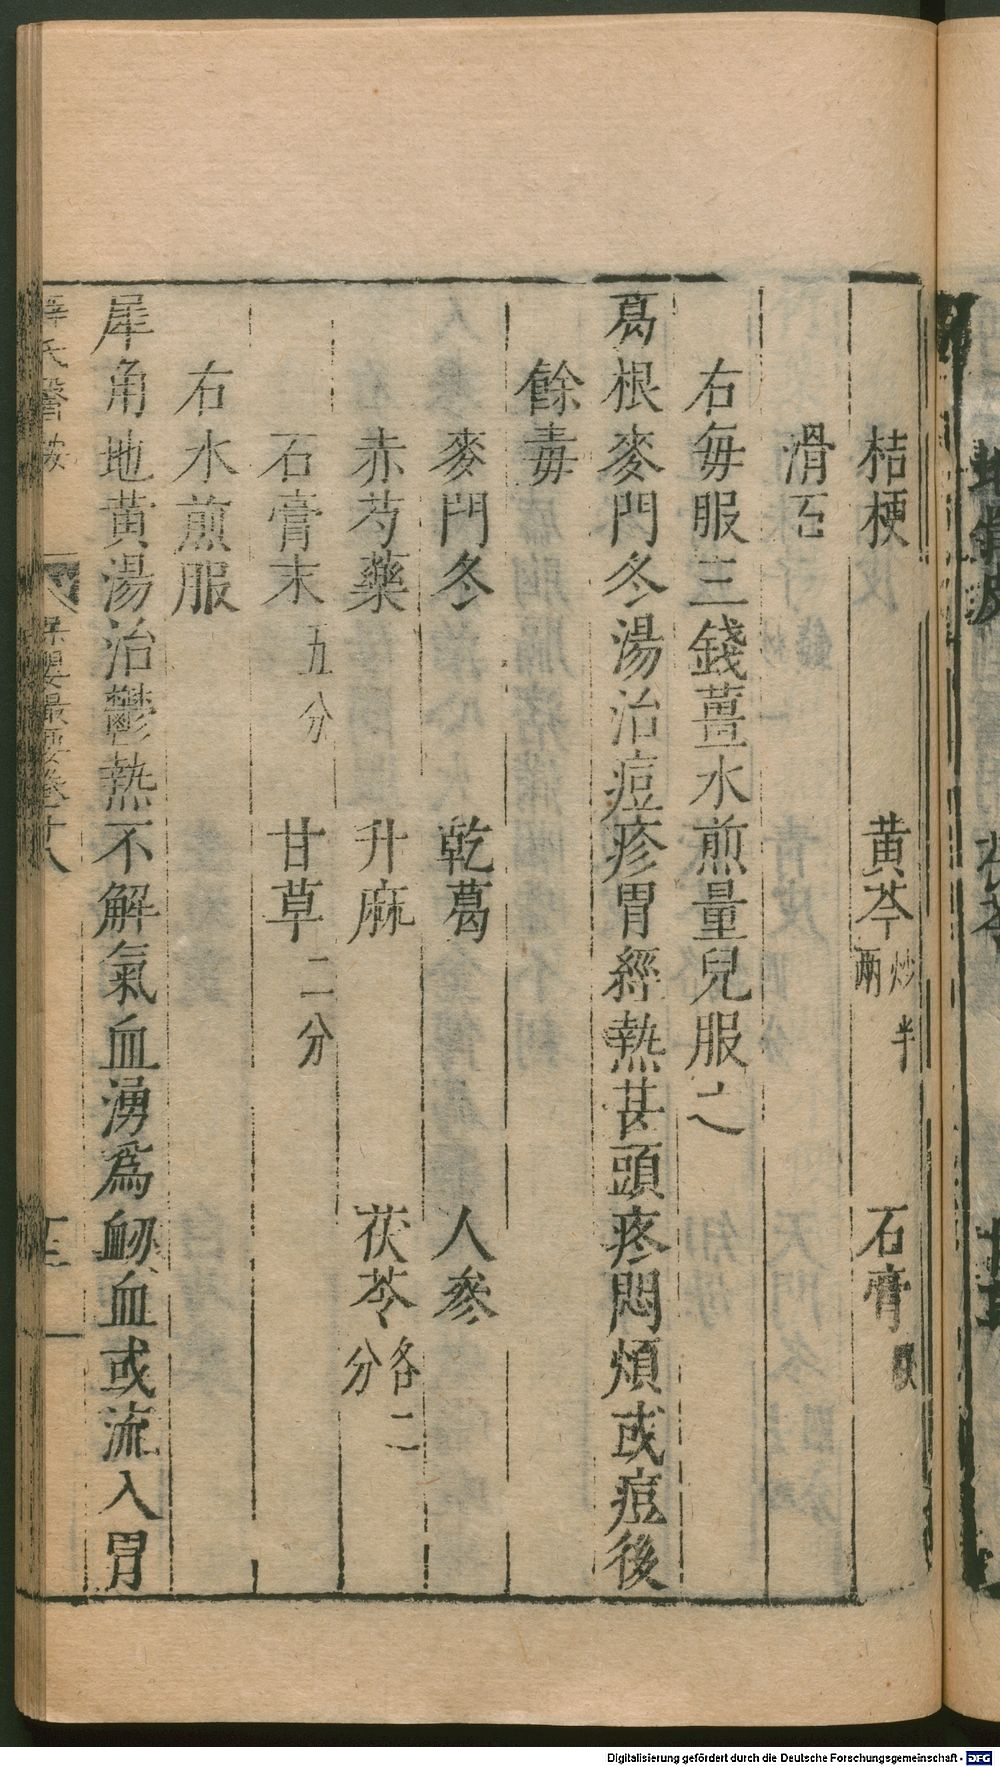 桔梗 黄芩炒半兩 石膏
滑石
右每服三錢薑水煎量兒服之
葛根麥門冬湯治痘疹胃經熱甚頭疼悶煩或痘後
餘毒
麥門冬 乾葛 人參
赤芍藥 升麻 茯苓各二分
石膏末五分 甘草二分
右水煎服
犀角地黄湯治鬱熱不解氣血湧爲衂血或流入胃
薛氏醫按 保嬰撮要卷十八
Digitalisierung gefördert durch die Deutsche Forschungsgemeinschaft - DFG